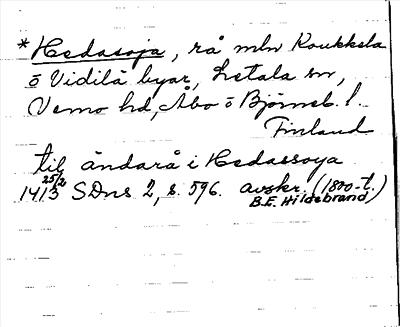 *Hedasoja, rå mln Koukkela
o Vidilä byar, Letala sn,
Vemo hd, Åbo o Björneb. l.
Finland
til ändarå i Hedassoya
1413 25/2 SDns 2, s. 596. avskr. (1800-t.)
B.E. Hildebrand